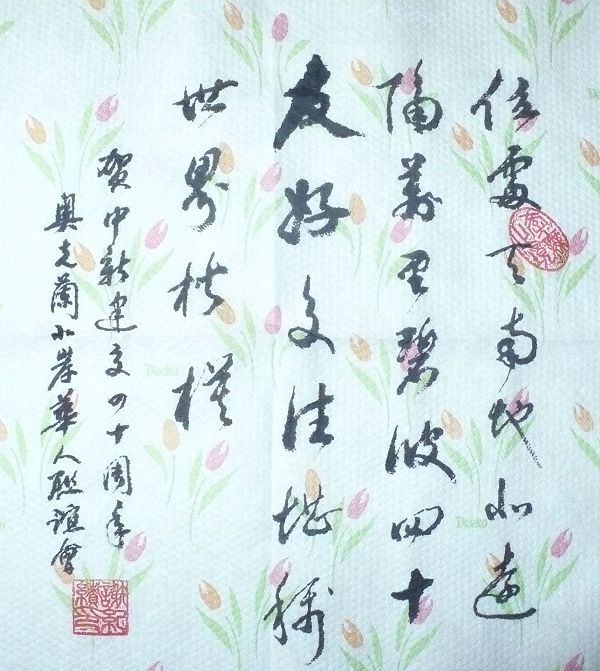 位處天南地北遠
隔萬里碧波四十
友好交往堪稱
世界楷模
賀中新建交四十周年
奧克蘭北岸華人聯誼會
Decko
Decko